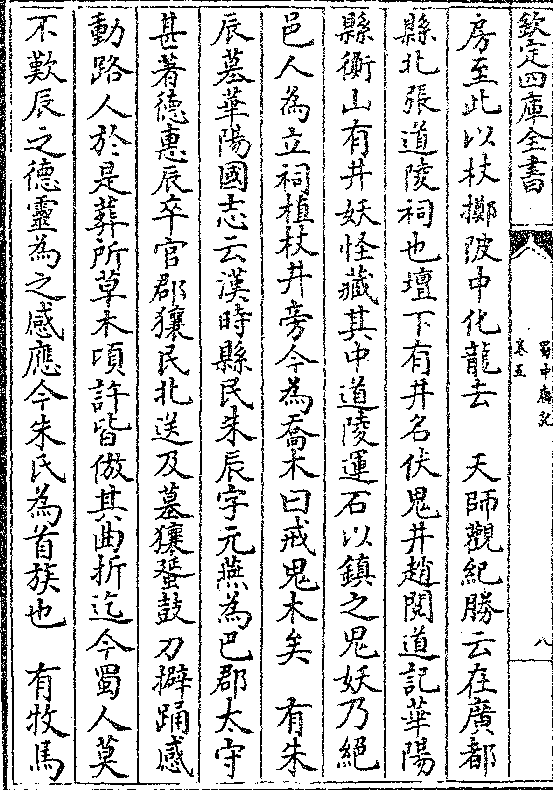 欽定四庫全書
蜀中廣記
卷五
八
房至此以杖擲陂中化龍去　天師觀紀勝云在廣都
縣北張道陵祠也壇下有井名伏鬼井趙閱道記華陽
縣衡山有井妖怪藏其中道陵運石以鎮之鬼妖乃絕
邑人為立祠植杖井旁今為喬木曰戒鬼木矣　有朱
辰墓華陽國志云漢時縣民朱辰字元燕為巴郡太守
甚著德惠辰卒官郡獽民北送及墓獽蜑鼓刀擗踊感
動路人於是葬所草木頃許皆倣其曲折迄今蜀人莫
不歎辰之德靈為之感應今朱氏為首族也　有牧馬